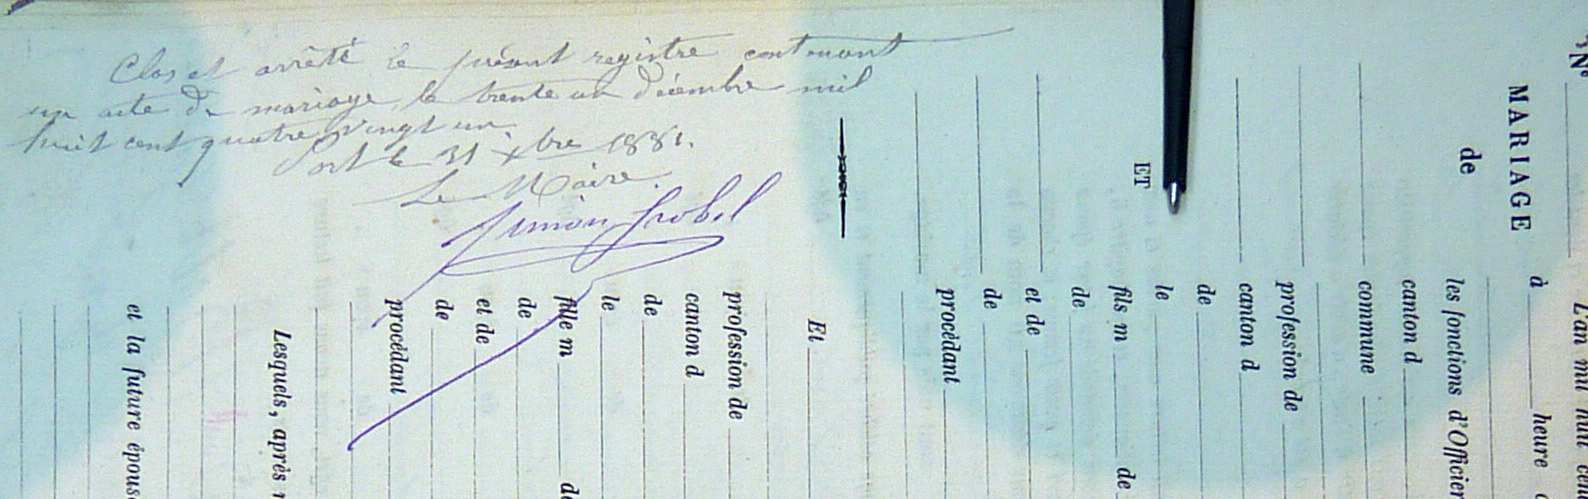 Clos et arrêté le présent registre contenant
un acte de mariage, le trente un décembre mil
huit cent quatre vingt un
Port le 31 Xbre 1881.
Le Maire.
Simon
N°
MARIAGE
de
ET
L'an mil huit cent
à heure
les fonctions d'Officier
canton d
commune
profession de
canton d
de
le
fils m de
de
et de
de
procédant
Et
profession de
canton d
de
le
fille m de
de
et de
de
procédant
Lesquels, après
et la future épouse